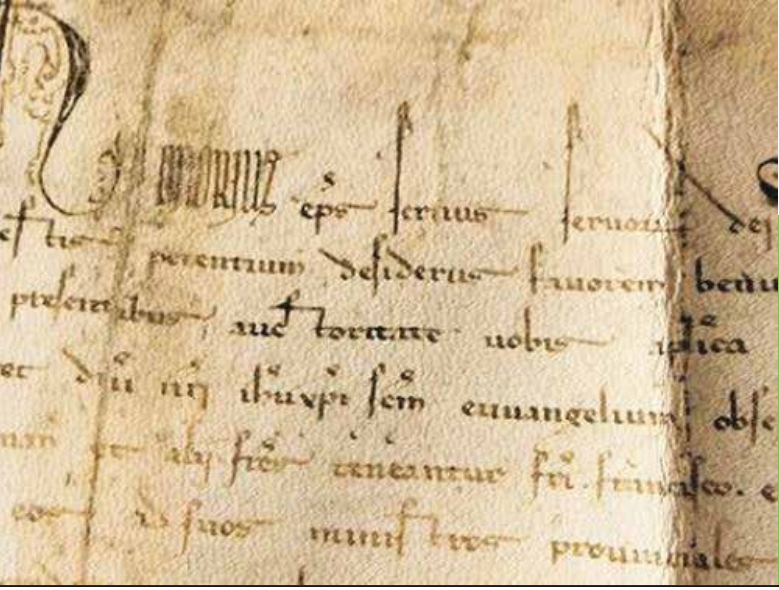 Honorius eps seruus seruorum dei
estis petentium desideriis fauorem beniu
presentibus, auctoritate uobis aplica
et dni nri ihu xpi scm euuangelium obse
et alij fres teneantur fri. francisco.
eos ad suos ministros prouinciales